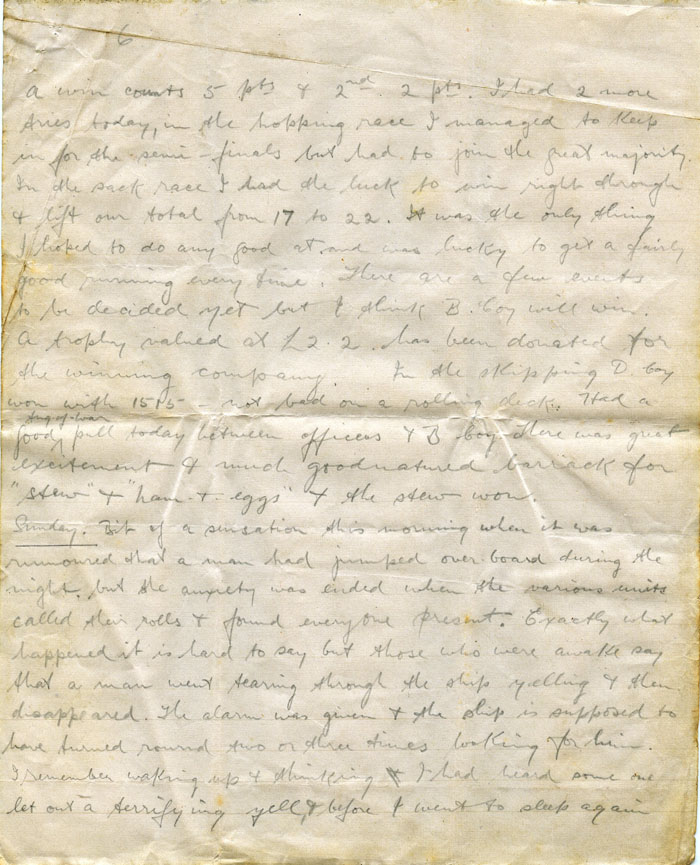 6
A win counts 5 pts & 2nd. 2 pts. I had 2 more
tries today, in the hopping race I managed to keep
in for the semi-finals but had to join the great majority.
In the sack race I had the luck to win right through
& lift our total from 17 to 22. It was the only thing
I hoped to do any good at and was lucky to get a fairly
good running every time. There are a few events
to be decided yet but I think B. Coy will win.
A trophy valued at £2.2. has been donated for
the winning company. In the skipping D. Coy
won with 1515 - not bad on a rolling deck. Had a
tug-of-war
good pull today between officers & B Coy. There was great
excitement & much goodnatured barrack for
"stew" & "ham-&-eggs" & the stew won.
Sunday. Bit of a sensation this morning when it was
rumoured that a man had jumped over-board during the
night. but the anxiety was ended when the various units
called their rolls & found everyone present. Exactly what
happened it is hard to say but those who were awake say
that a man went tearing through the ship yelling & then
disappeared. The alarm was given & the ship is supposed to
have turned round two or three times looking for him.
I remember waking up & thinking I had heard some one
let out a terrifying yell, & before I went to sleep again